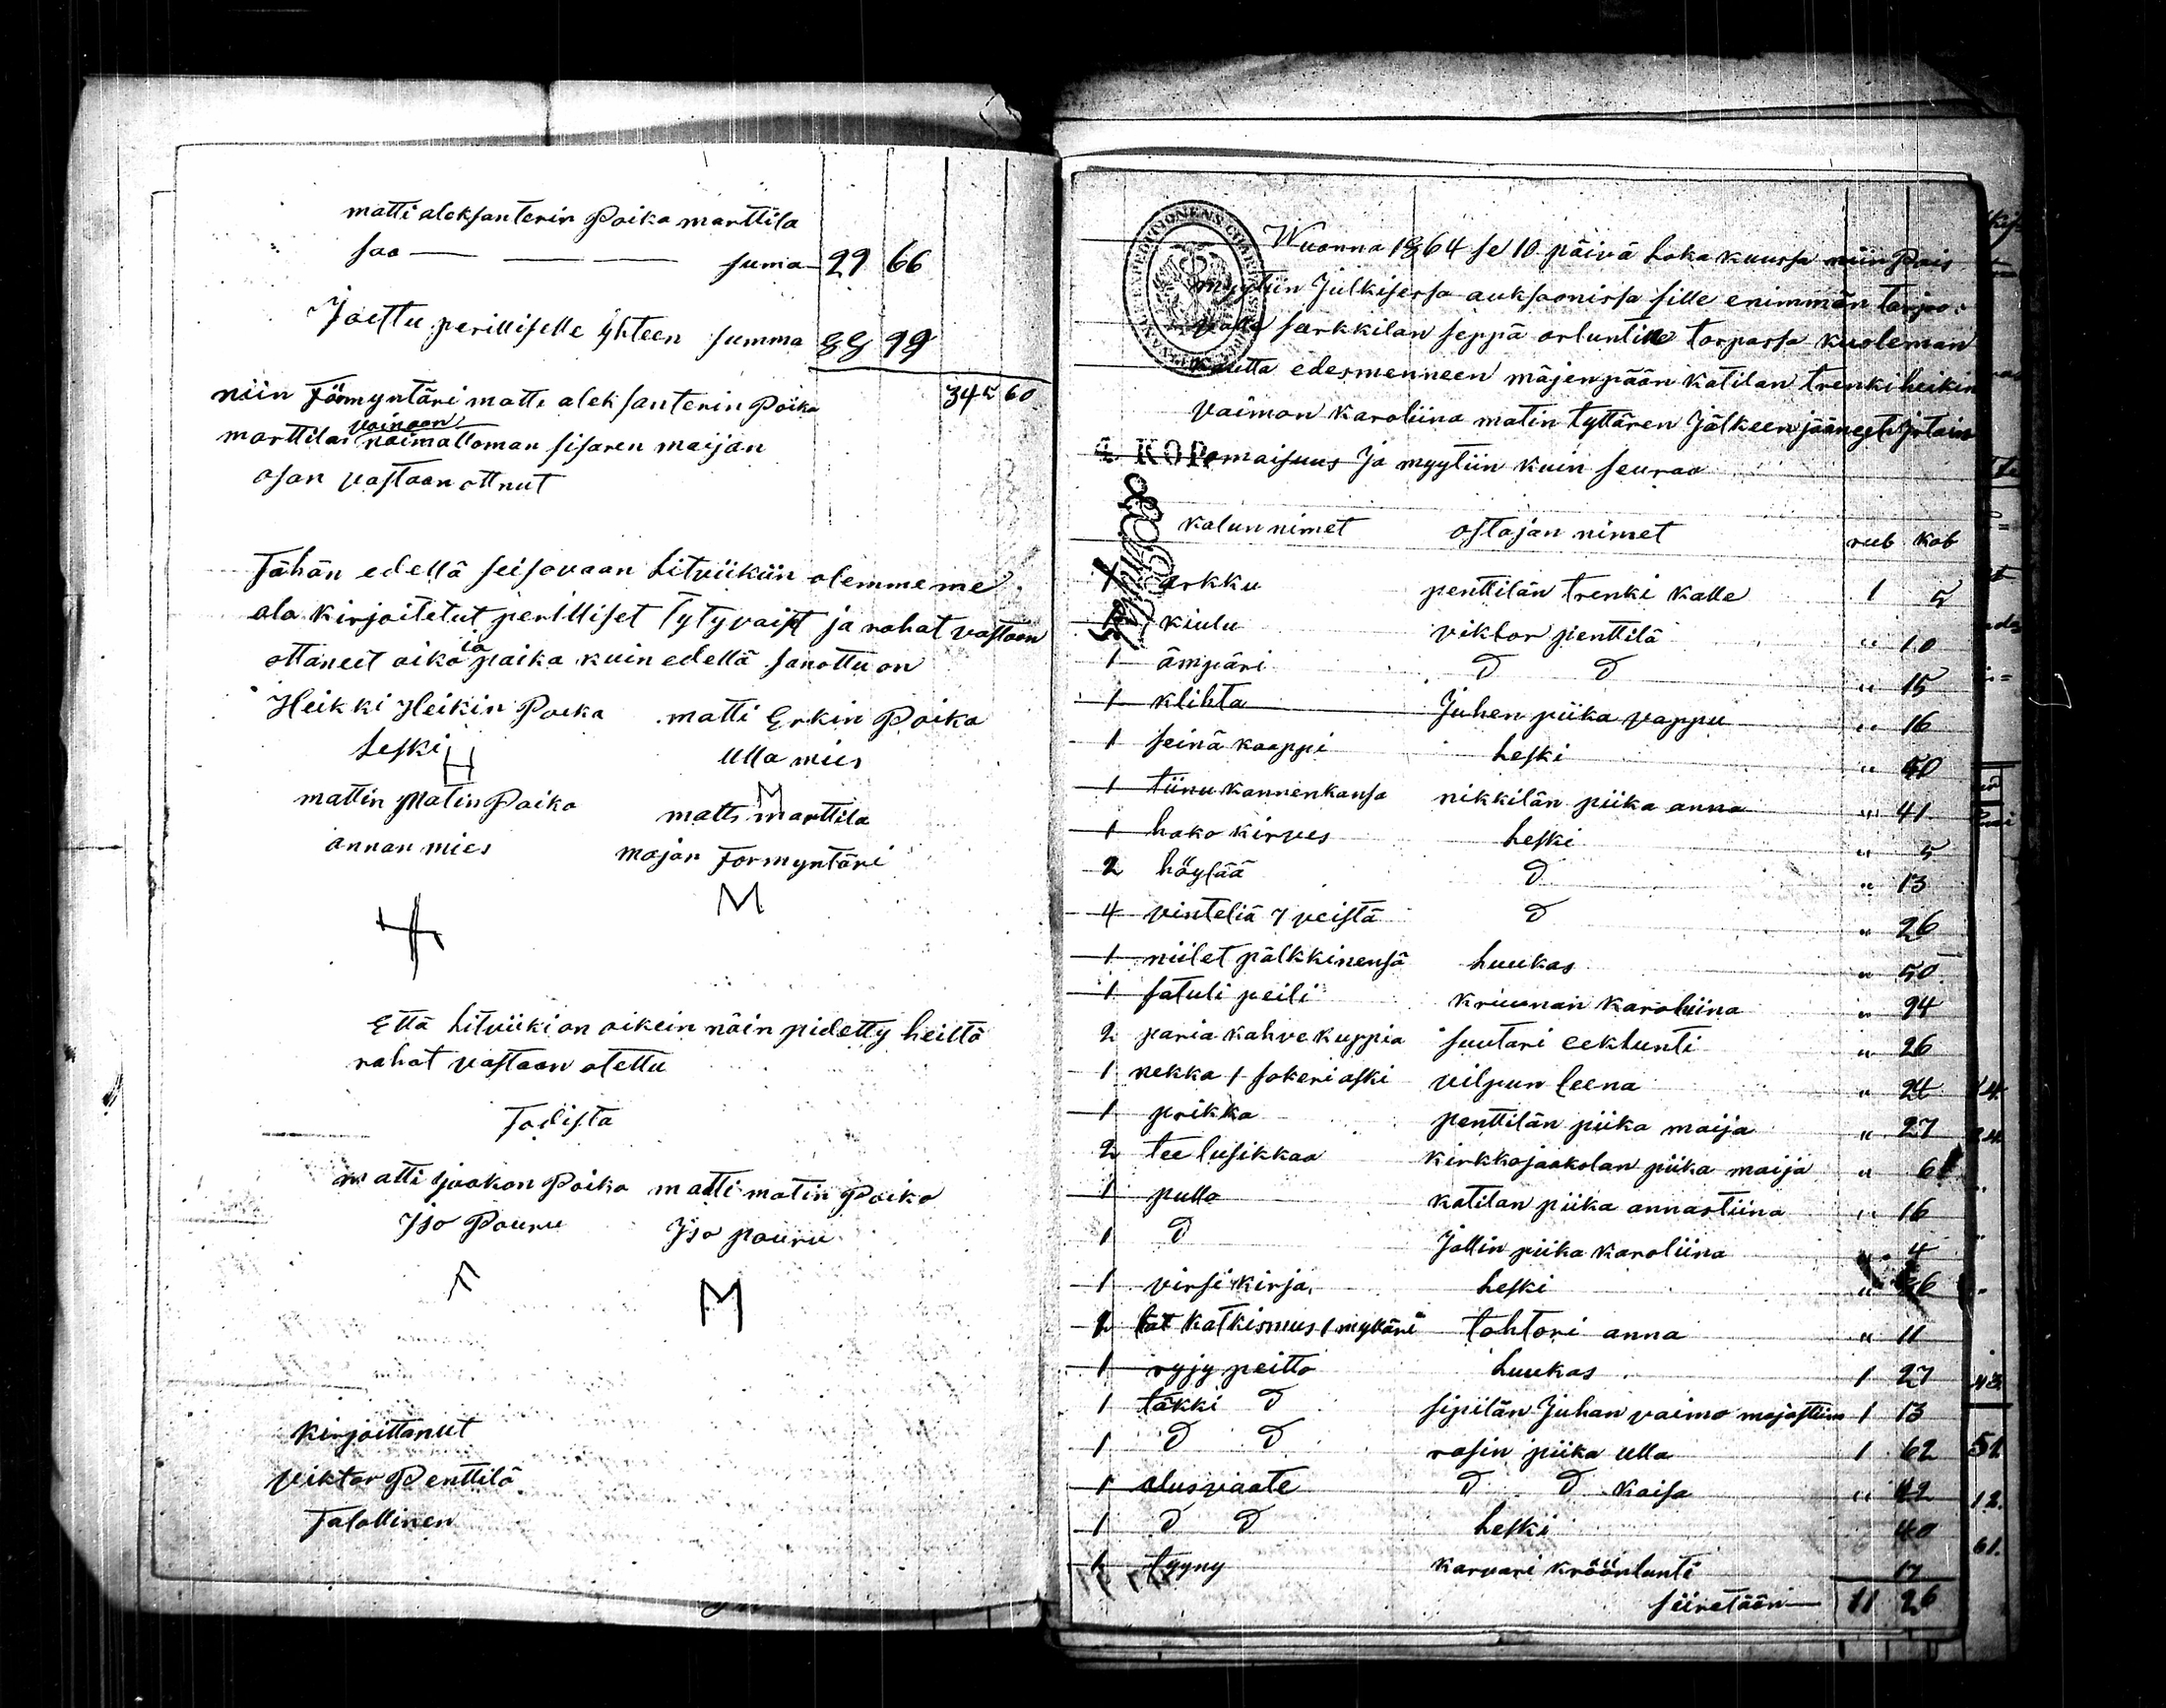 matti aleksanterin Poika marttila
saa — — — suma 29 66
Jaettu perilliselle yhteen summa 88 98
345 60
niin Förmyntäri matti aleksanterin Poika
marttilas vainaan naimattoman sisaren maijan
osan vastaan ottnut
Tähän edellä seisovaan Litviikiin olemme me
ala kirjoitetut perilliset Tytyvaist ja rahat vastaan
ottaneet aika ja paika kuin edellä sanottu on
Heikki Heikin Poika matti Erkin Poika
Leski H Ulla mies
M
mattin Matin Poika matti marttila
annan mies majan Formyntäri
M
Että Litviiki on oikein näin pidetty heiltä
rahat vastaan otettu
Todista
matti jaakon Poika matti matin Poika
Iso Pouru Iso pouru
M
kirjoittanut
viktor Penttilä
Talollinen
Wuonna 1864 se 10 päivä Loka kuussa niin Pois
myytiin Julkisessa auksoonissa sille enimmän tarjo:
valle särkkilan seppä orluntin torpassa kuoleman
kautta edesmenneen mäjenpään katilan trenki heikin
vaimon karoliina matin tyttären Jälkeen jääneet Jrtain
4 KOP. omaisuus Ja myytiin kuin seuraa
kalun nimet ostajan nimet rub kob
1 arkku penttilän trenki kalle 1 5
1 kiulu viktor penttilä " 10
1 ämpäri D D " 15
1 klihta Juhen piika vappu " 16
1 seinä kaappi leski " 50
1 tiinu kannenkansa nikkilän piika anna " 41
1 hako kirves leski " 5
2 höylää D " 13
4 vinteliä 7 veistä D " 26
1 niilet pälkkinensä luukas " 50
1 satuli peili kruunan karoliina " 94
2 paria kahve kuppia suutari eeklunti " 26
1 nekka 1 sokeri aski vilpun leena " 24
1 prikka penttilän piika maija " 27
2 tee lusikkaa kirkkojaakolan piika maija " 61
1 pullo katilan piika annastiina " 16
1 D Jallin piika karoliina " 4
1 virsi kirja leski " 26
1 kat katkismus 1 myttäri tohtori anna " 11
1 ryjy peitto luukas 1 27
1 täkki D sipilän Juhan vaimo majastiina 1 13
1 D D rasin piika ulla 1 62
1 alusvaate D D kaisa " 42
1 D D leski 40
1 tyyny karvari kröönlunti 17
siiretään — 11 26